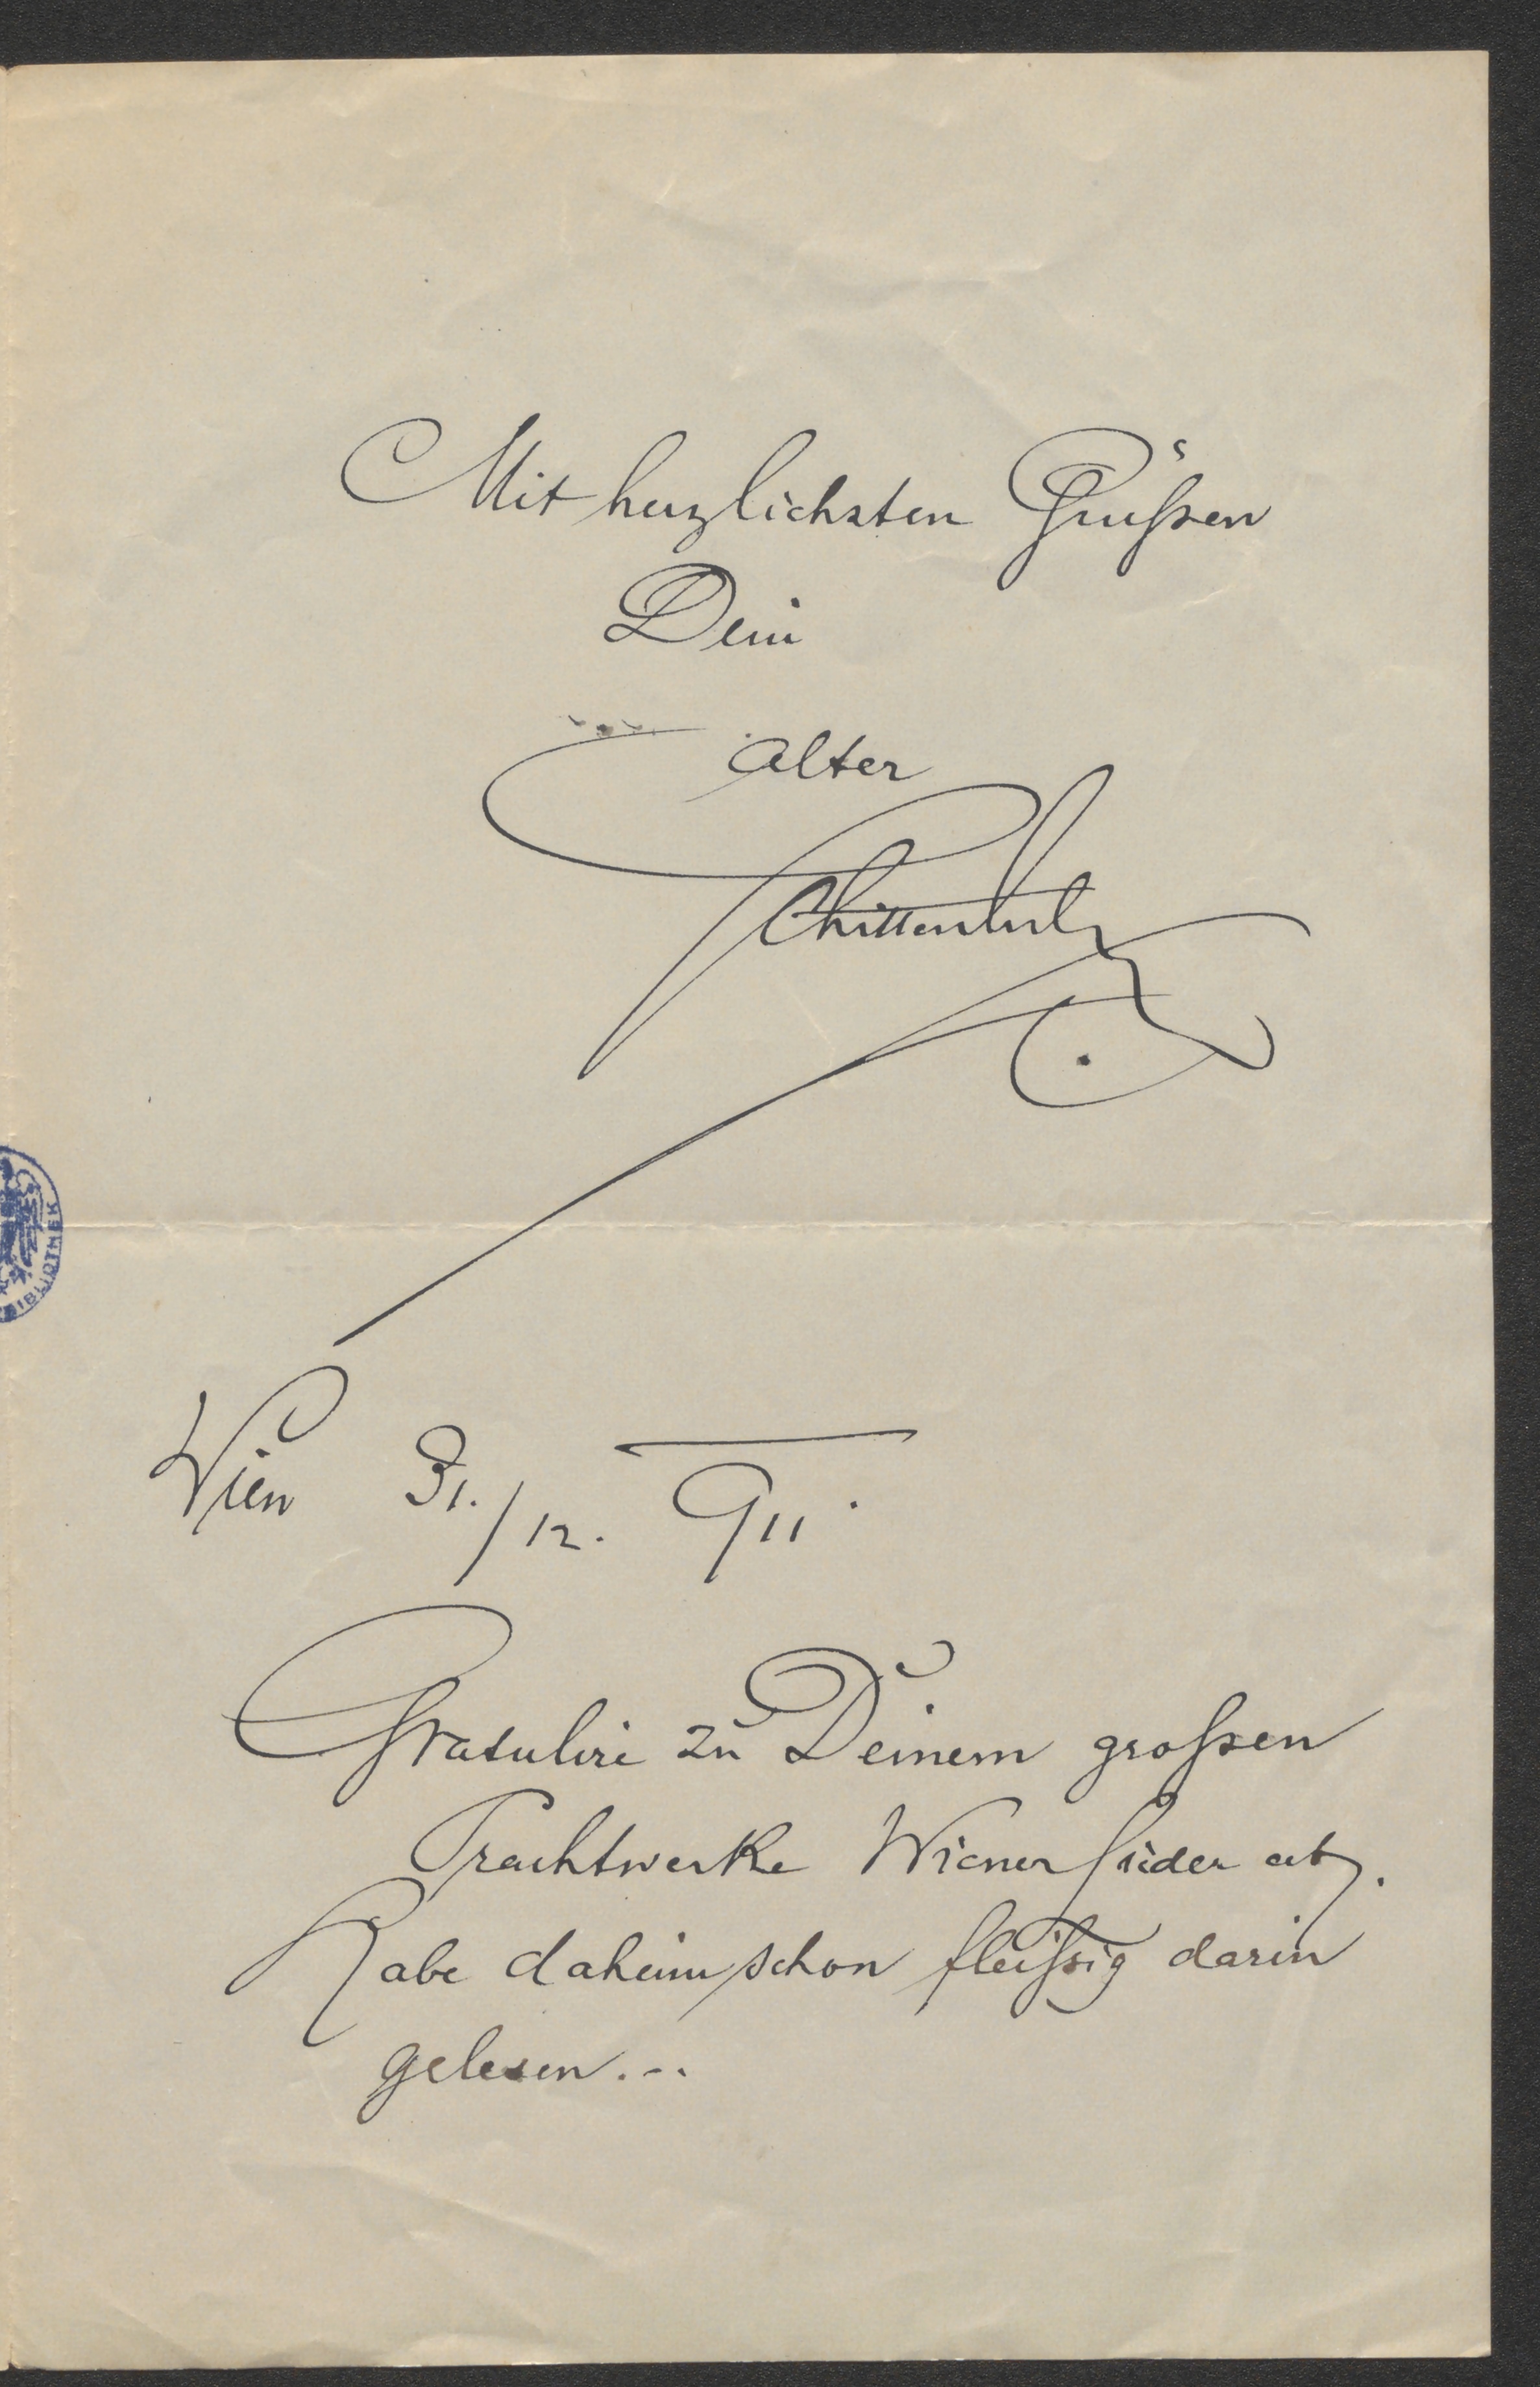 Mit herzlichsten Grüßen
Dein
alter
Wien 31./12. 911.
Gratulire zu Deinem großen
Prachtwerke Wienerlieder etz.
Habe daheim schon fleißig darin
gelesen...
BIBLIOTHEK